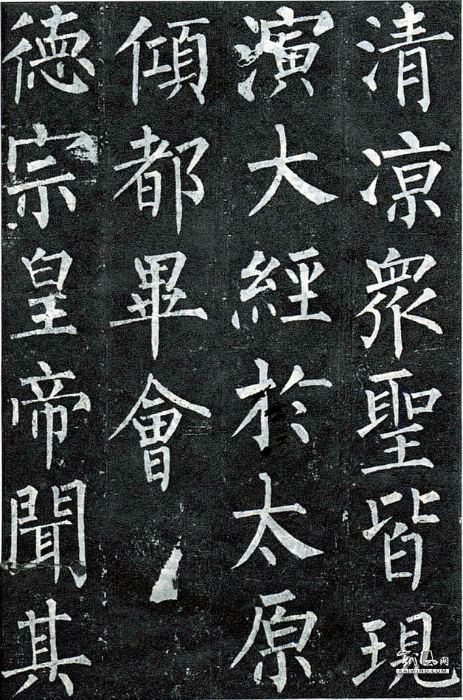 清凉衆聖皆現
演大經於太原
傾都畢會
德宗皇帝聞其
KAIWIND.COM